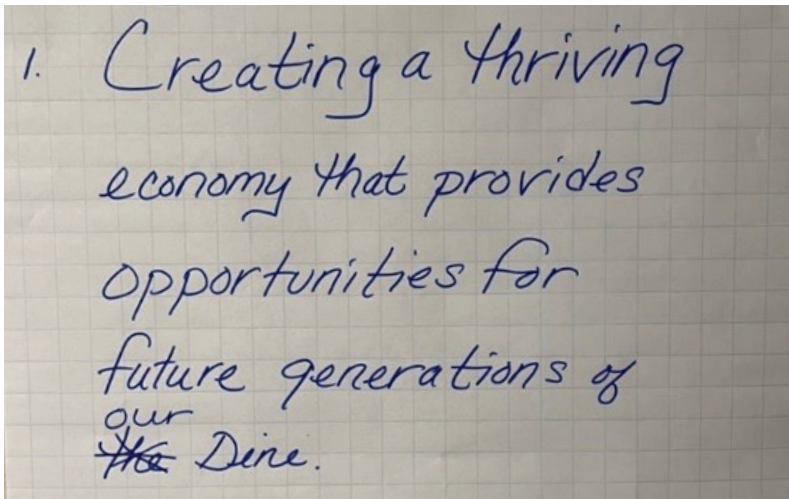 1. Creating a thriving
economy that provides
opportunities for
future generations of
our
the Dine.